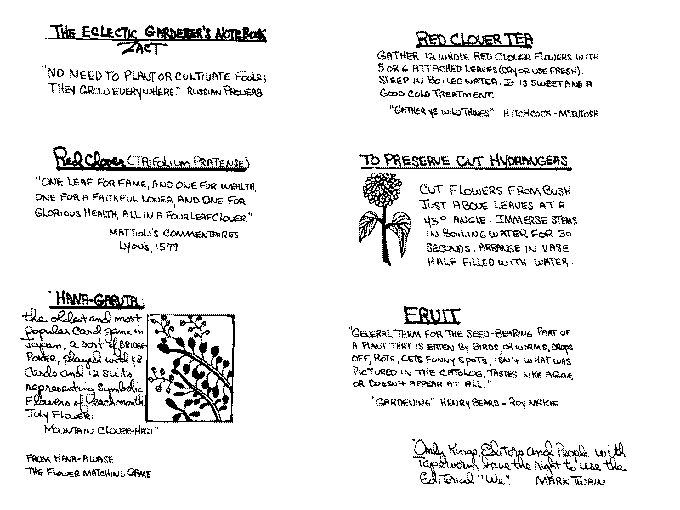 THE ECLECTIC GARDENER'S NOTEBOOK
"NO NEED TO PLANT OR CULTIVATE FOOLS;
THEY GROW EVERYWHERE." RUSSIAN PROVERB
Red Clover (TRIFOLIUM PRATENSE)
"ONE LEAF FOR FAME, AND ONE FOR WEALTH,
ONE FOR A FAITHFUL LOVER, AND ONE FOR
GLORIOUS HEALTH, ALL IN A FOUR LEAF CLOVER"
MATTIOLI'S COMMENTAIRES
LYONS, 1579
"HANA-GARUTA:
the oldest and most
popular card game in
Japan, a sort of BRIDGE-
POKER, played with 48
Cards and 12 suits
representing symbolic
Flowers of each month
July Flower:
MOUNTAIN CLOVER-HAGI"
FROM HANA-AWASE
THE FLOWER MATCHING GAME
RED CLOVER TEA
GATHER 12 WHOLE RED CLOVER FLOWERS WITH
5 OR 6 ATTACHED LEAVES (DRY OR USE FRESH).
STEEP IN BOILED WATER. IT IS SWEET AND A
GOOD COLD TREATMENT.
"GATHER YE WILD THINGS" HITCHCOCK-MCINTOSH
TO PRESERVE CUT HYDRANGEAS
CUT FLOWERS FROM BUSH
JUST ABOVE LEAVES AT A
45° ANGLE. IMMERSE STEMS
IN BOILING WATER FOR 30
SECONDS. ARRANGE IN VASE
HALF FILLED WITH WATER.
FRUIT
"GENERAL TERM FOR THE SEED-BEARING PART OF
A PLANT THAT IS EATEN BY BIRDS OR WORMS, DROPS
OFF, ROTS, GETS FUNNY SPOTS, ISN'T WHAT WAS
PICTURED IN THE CATALOG, TASTES LIKE
OR DOESN'T APPEAR AT ALL."
"GARDENING" HENRY BEARD - ROY MCKIE
"Only Kings, Editors and People with
Tapeworm have the right to use the
Editorial "We". MARK TWAIN